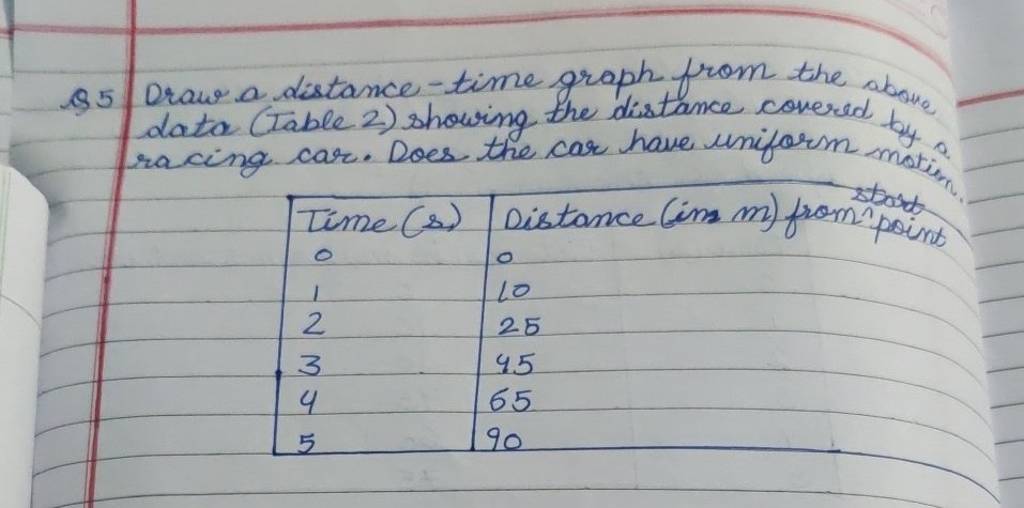 Q5 Draw a distance-time graph from the above
data (Table 2) showing the distance covered by a
racing car. Does the car have uniform motion.
Time (s) Distance (in m) from ^ start point
0 0
1 10
2 25
3 45
4 65
5 90